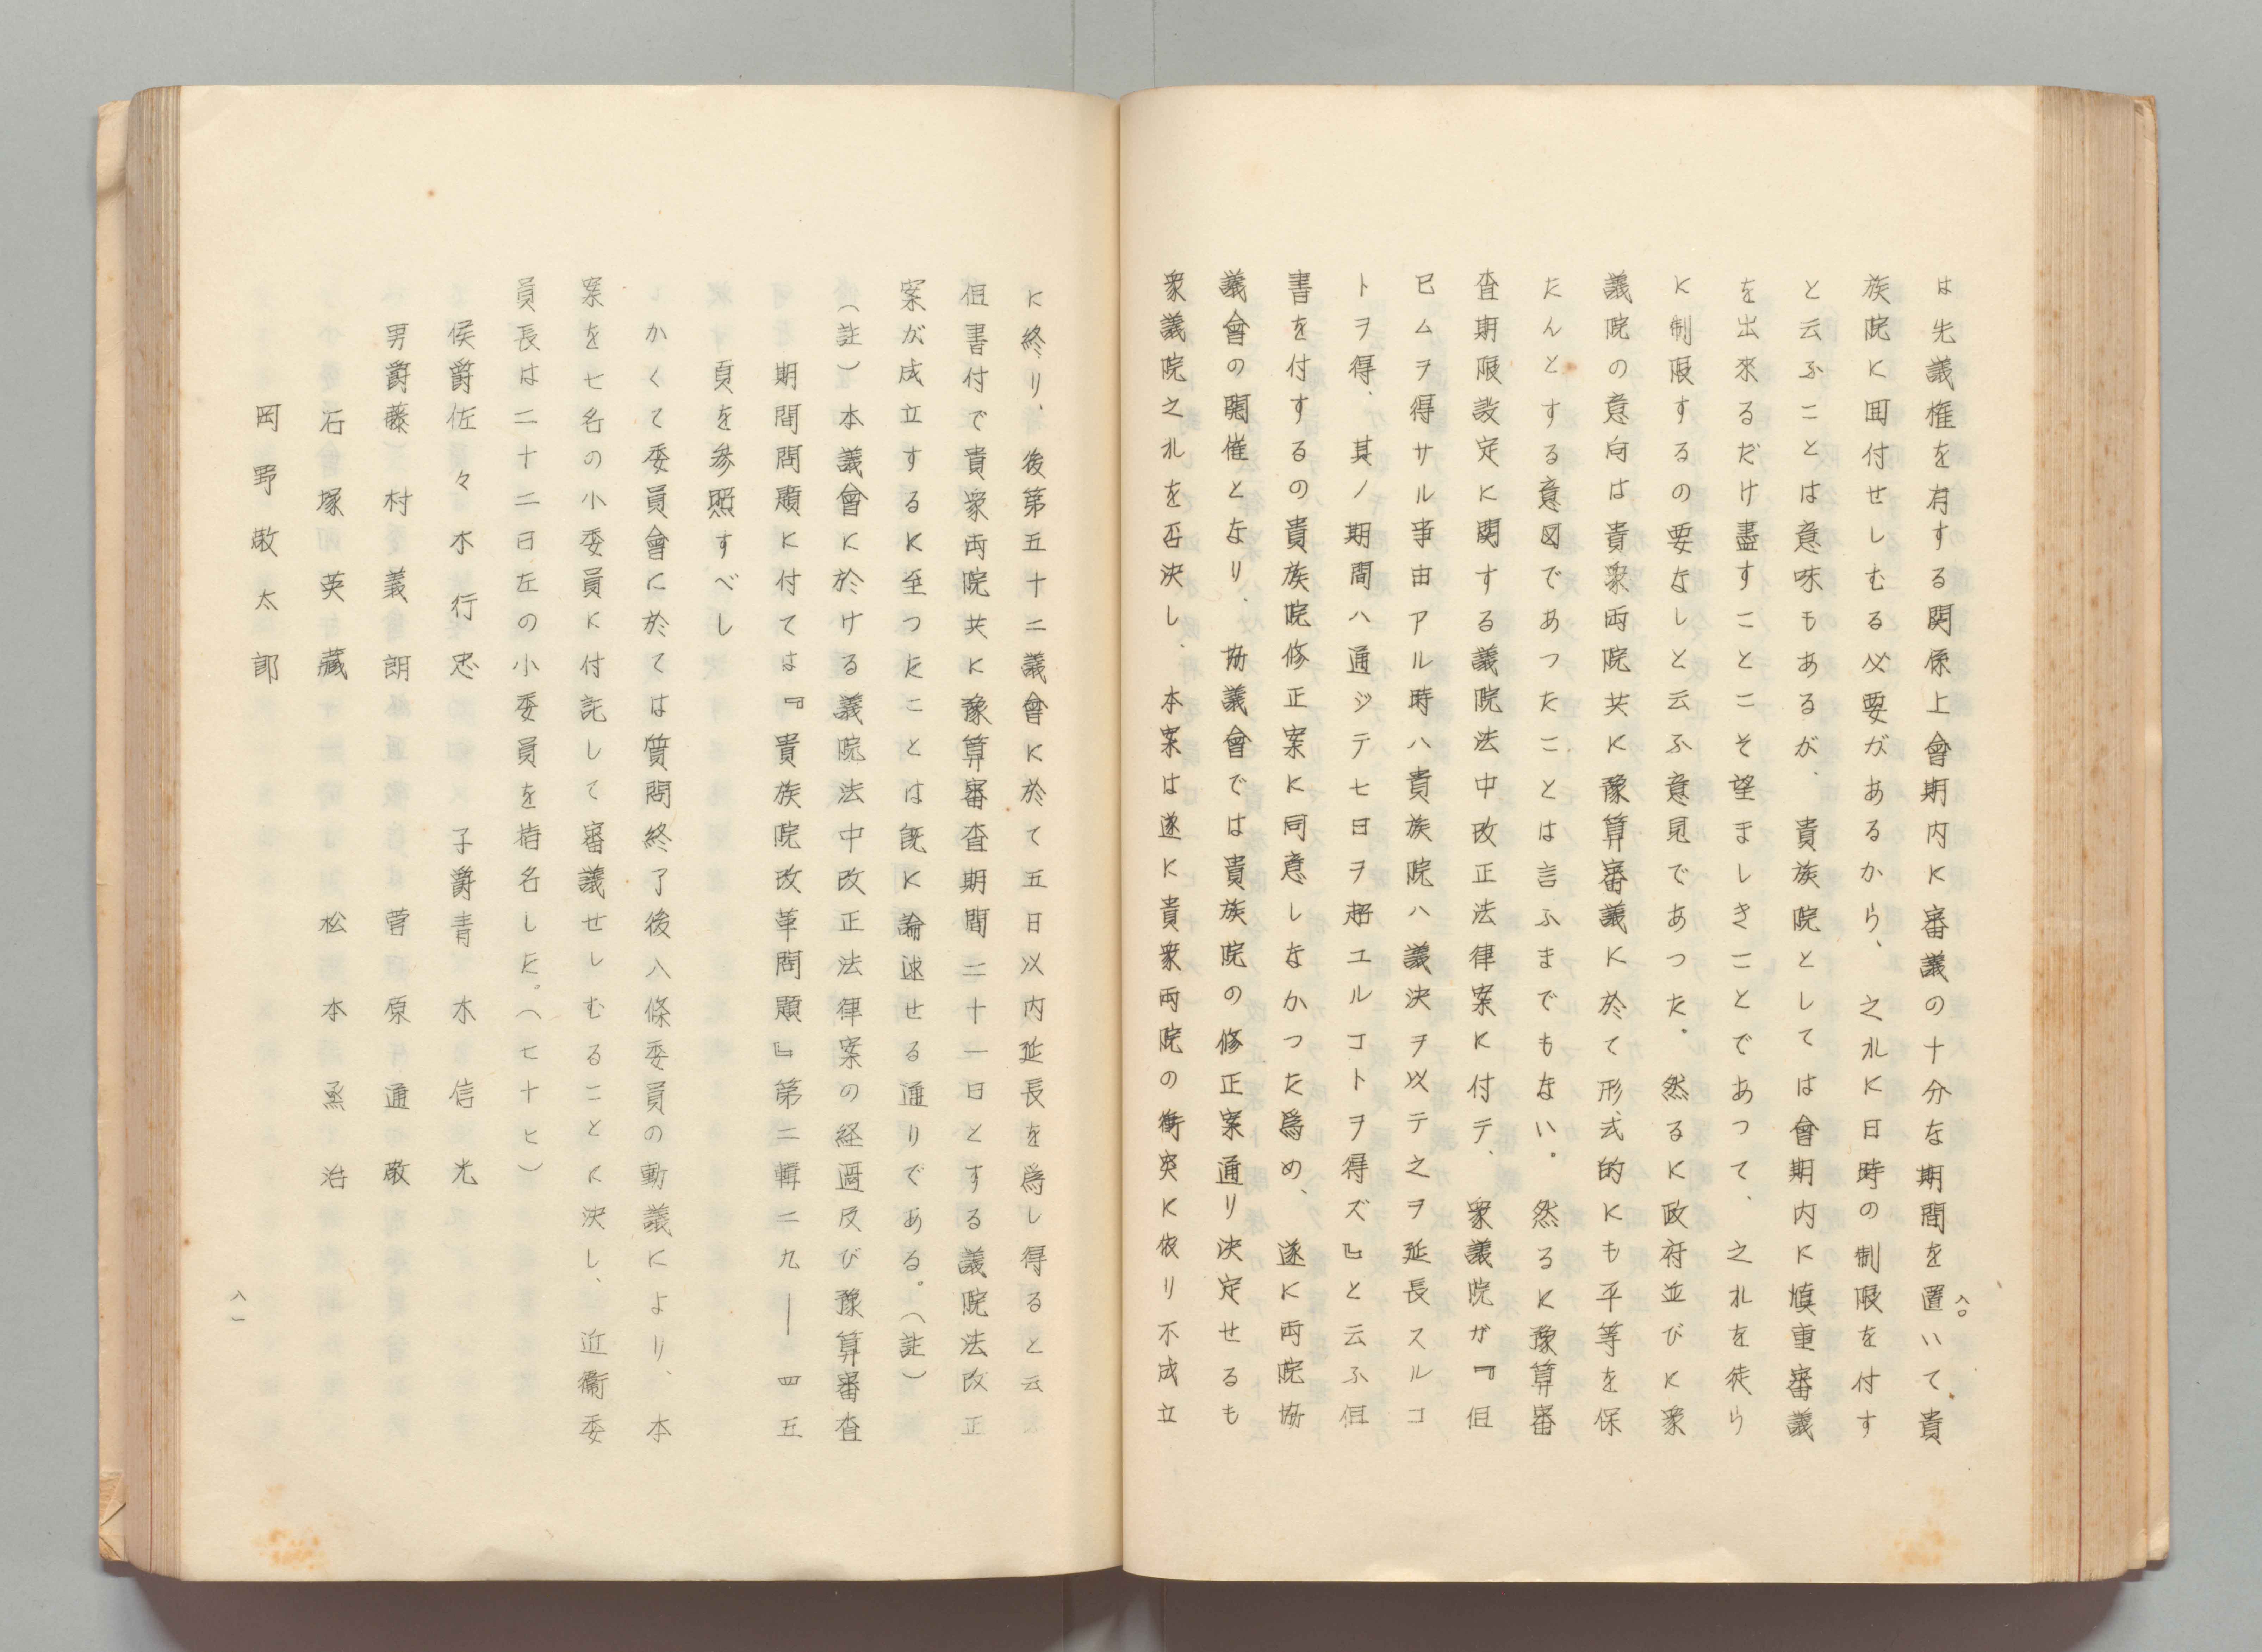 は先議権を有する関係上會期内に審議の十分な期間を置いて、貴
族院に囬付せしむる必要があるから、之れに日時の制限を付す
と云ふことは意味もあるが、貴族院としては會期内に慎重審議
を出來るだけ盡すことこそ望ましきことであつて、之れを徒ら
に制限するの要なしと云ふ意見であつた。然るに政府並びに衆
議院の意向は貴衆両院共に豫算審議に於て形式的にも平等を保
たんとする意図であつたことは言ふまでもない。然るに豫算審
査期限設定に関する議院法中改正法律案に付テ、衆議院が『但
已ムヲ得サル事由アル時ハ貴族院ハ議決ヲ以テ之ヲ延長スルコ
トヲ得、其ノ期間ハ通ジテ七日ヲ超エルコトヲ得ズ』と云ふ但
書を付するの貴族院修正案に同意しなかつた爲め、遂に両院協
議會の開催となり、協議會では貴族院の修正案通り決定せるも
衆議院之れを否決し、本案は遂に貴衆両院の衝突に依り不成立
八〇
に終り、後第五十二議會に於て五日以内延長を爲し得ると云
但書付で貴衆両院共に豫算審査期間二十一日とする議院法改正
案が成立するに至つたことは既に論述せる通りである。(註)
(註)本議會に於ける議院法中改正法律案の経過及び豫算審査
期間問題に付ては『貴族院改革問題』第二輯二九―四五
頁を参照すべし
かくて委員會に於ては質問終了後入條委員の動議により、本
案を七名の小委員に付託して審議せしむることに決し、近衞委
員長は二十二日左の小委員を指名した。(七十七)
侯爵佐々木行忠 子爵青木信光
男爵藤村義朗 菅原通敬
石塚英藏 松本烝治
岡野敬太郎
八一